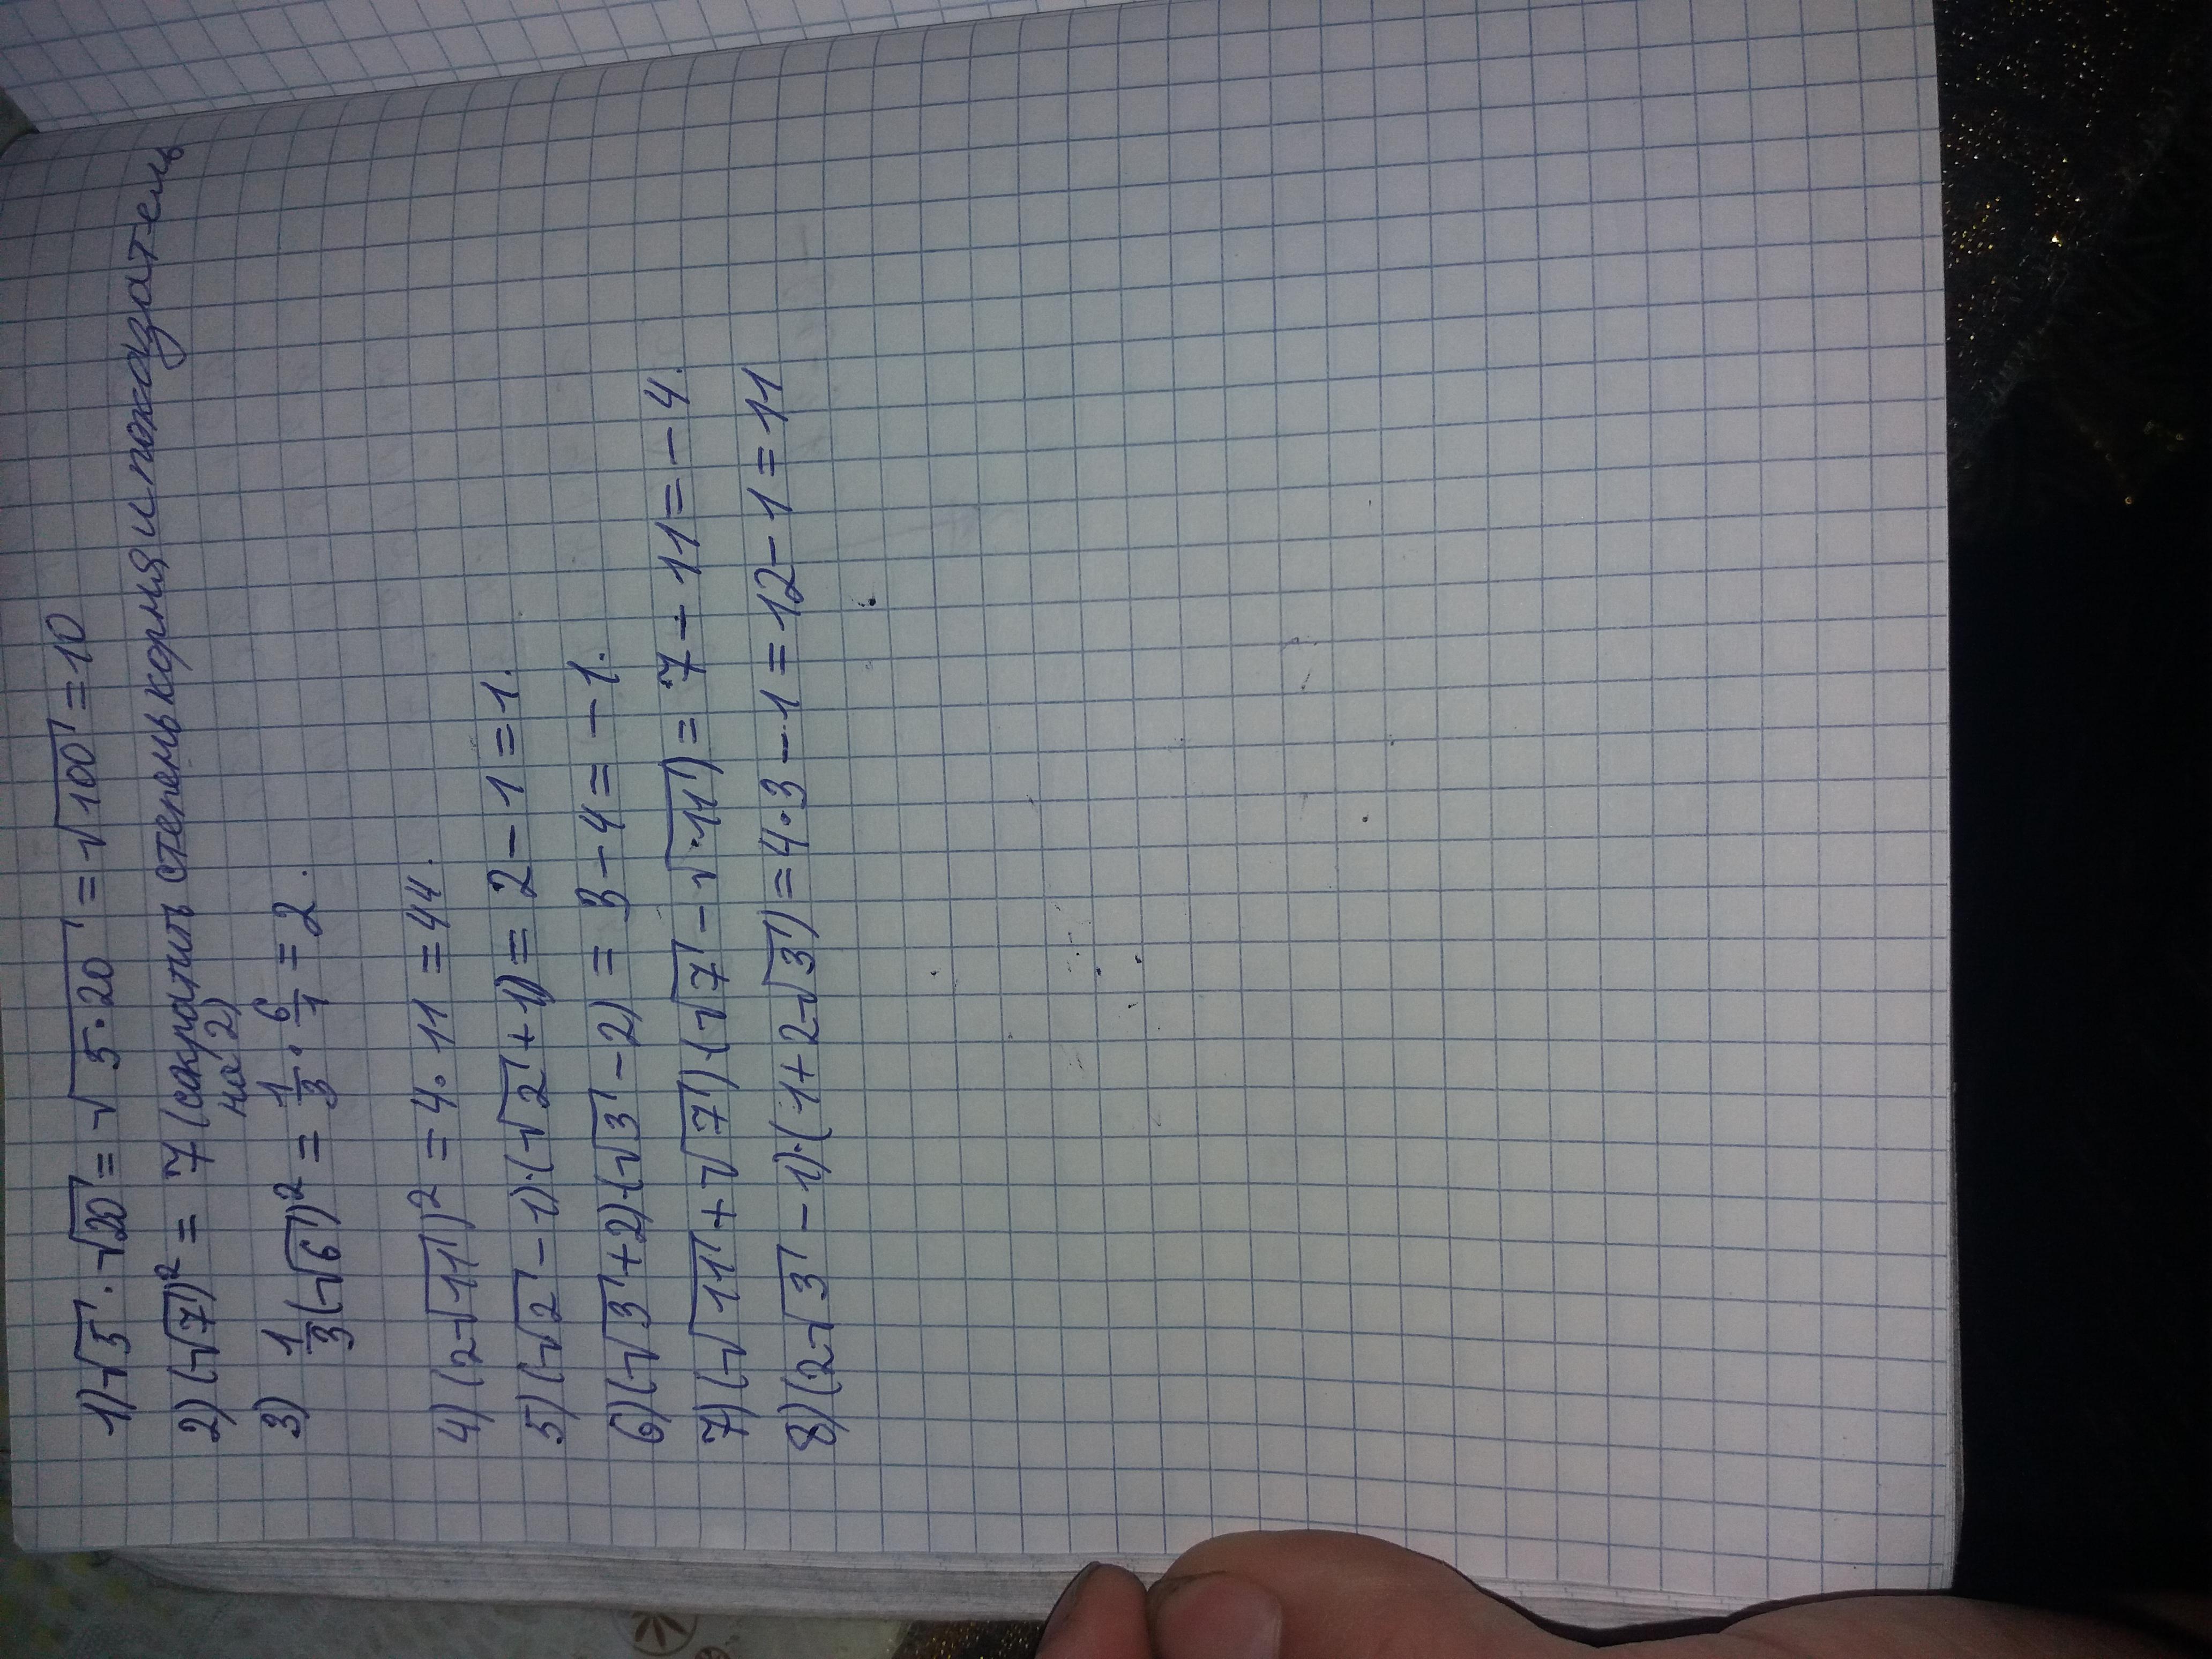 1) √5 · √20 = √5·20 = √100 = 10
2) (√7)² = 7 (сократить степень корня и показатель
на 2)
3) 1/3 (√6)² = 1/3 · 6/1 = 2.
4) (2√11)² = 4 · 11 = 44.
5) (√2 - 1)·(√2 + 1) = 2 - 1 = 1.
6) (√3 + 2)·(√3 - 2) = 3 - 4 = - 1.
7) (√11 + √7)·(√7 - √11) = 7 - 11 = - 4.
8) (2√3 - 1)·(1 + 2√3) = 4·3 - 1 = 12 - 1 = 11